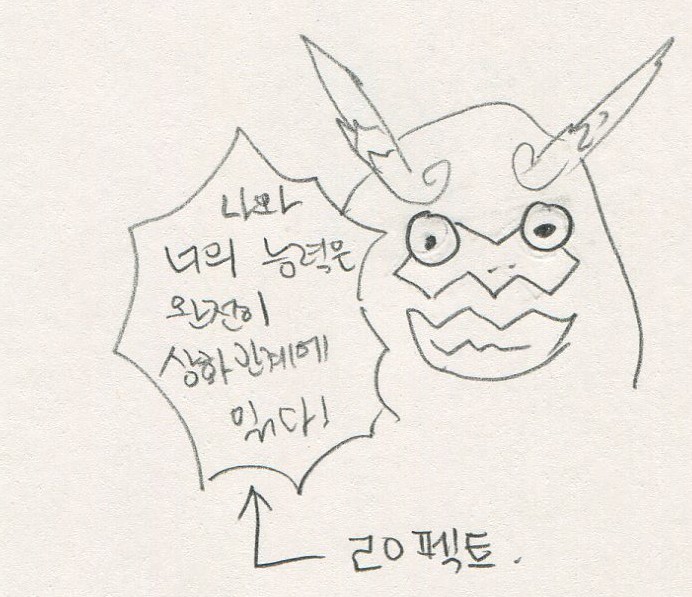 나와
너의 능력은
완전히
상하관계에
있다!
ㄹㅇ펙트.